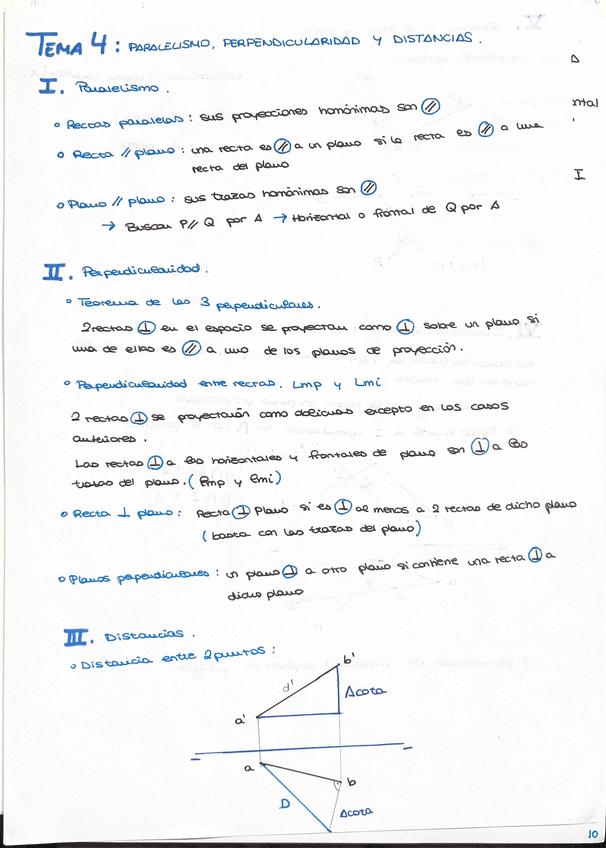 TEMA 4: PARALELISMO, PERPENDICULARIDAD Y DISTANCIAS.
I. Paralelismo.
∘ Rectas paralelas: sus proyecciones homónimas son //
∘ Recta // plano: una recta es // a un plano si la recta es // a una
recta del plano
∘ Plano // plano: sus trazas homónimas son //
→ Buscar P // Q por A → Horizontal o frontal de Q por A
ntal
I
II. Perpendicularidad.
∘ Teorema de las 3 perpendiculares.
2 rectas ⊥ en el espacio se proyectan como ⊥ sobre un plano si
una de ellas es // a uno de los planos de proyección.
∘ Perpendicularidad entre rectas. Lmp y Lmi
2 rectas ⊥ se proyectarán como oblicuas excepto en los casos
anteriores.
Las rectas ⊥ a las horizontales y frontales de plano son ⊥ a las
trazas del plano. (lmp y lmi)
∘ Recta ⊥ plano: Recta ⊥ Plano si es ⊥ al menos a 2 rectas de dicho plano
(basta con las trazas del plano)
∘ Planos perpendiculares: un plano ⊥ a otro plano si contiene una recta ⊥ a
dicho plano
III. Distancias.
∘ Distancia entre 2 puntos:
b'
d'
Δcota
a'
a
b
D
Δcota
10